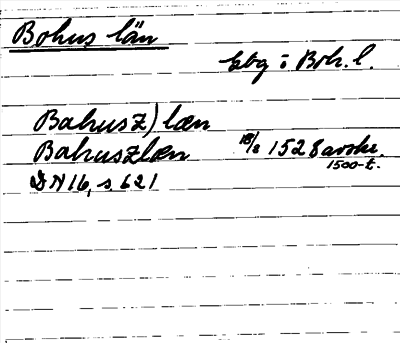 Bohus län
ktg i Boh. l.
Bahusz) læn
Bahuszlæn 18/2 1528 avskr.
1500-t.
DN 16, s 621